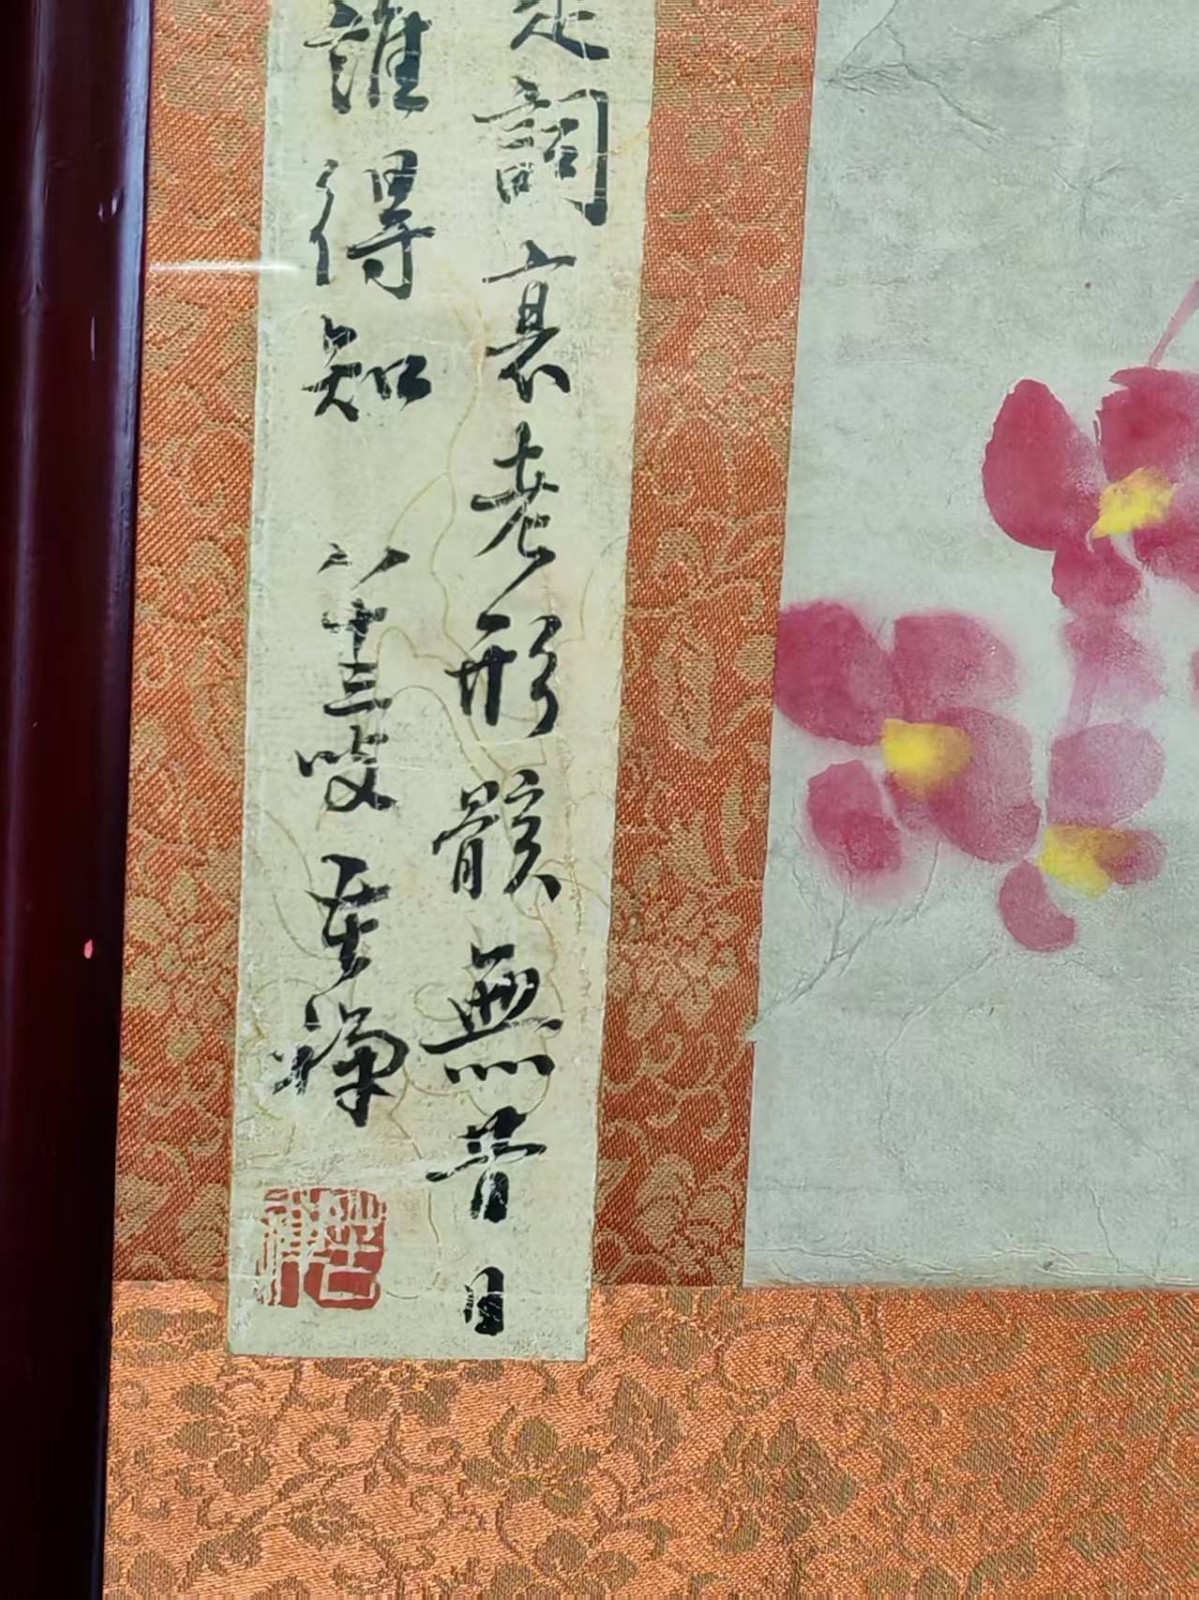 詞衰老形骸無昔日
誰得知
八十三叟